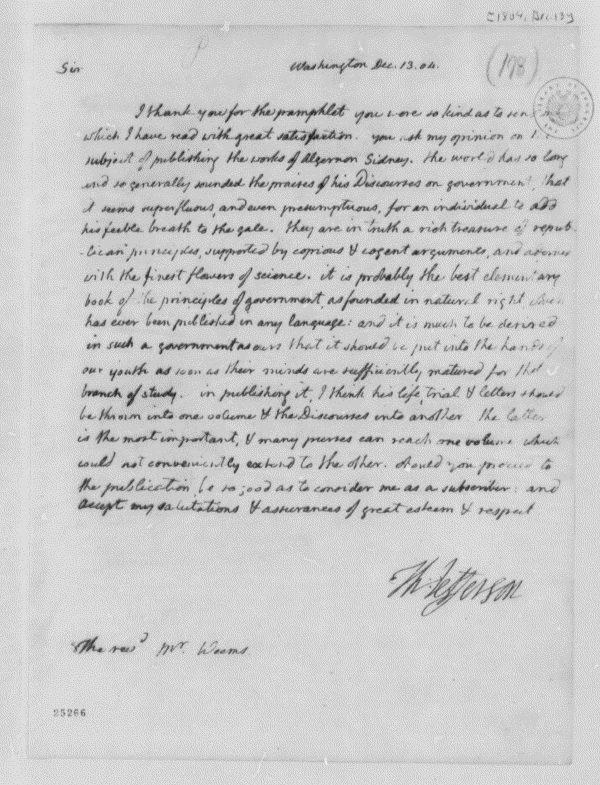 [1804, Dec. 13]
(178)
Sir
Washington Dec. 13. 04.
I thank you for the pamphlet you were so kind as to send
which I have read with great satisfaction. you ask my opinion on
subject of publishing the works of Algernon Sidney. the world has so long
and so generally sounded the praises of his Discourses on government, that
it seems superfluous, and even presumptuous, for an individual to add
his feeble breath to the gale. they are in truth a rich treasure of repub-
-lican principles, supported by copious & cogent arguments, and adorned
with the finest flowers of science. it is probably the best elementary
book of the principles of government, as founded in natural right which
has ever been published in any language: and it is much to be desired
in such a government as ours that it should be put into the hands of
our youth as soon as their minds are sufficiently matured for that
branch of study. in publishing it, I think his life, trial & letters should
be thrown into one volume & the Discourses into another. the latter
is the most important, & many purses can reach one volume which
could not conveniently extend to the other. should you proceed to
the publication be so good as to consider me as a subscriber: and
accept my salutations & assurances of great esteem & respect
Th: Jefferson
The revd. Mr. Weems
25266